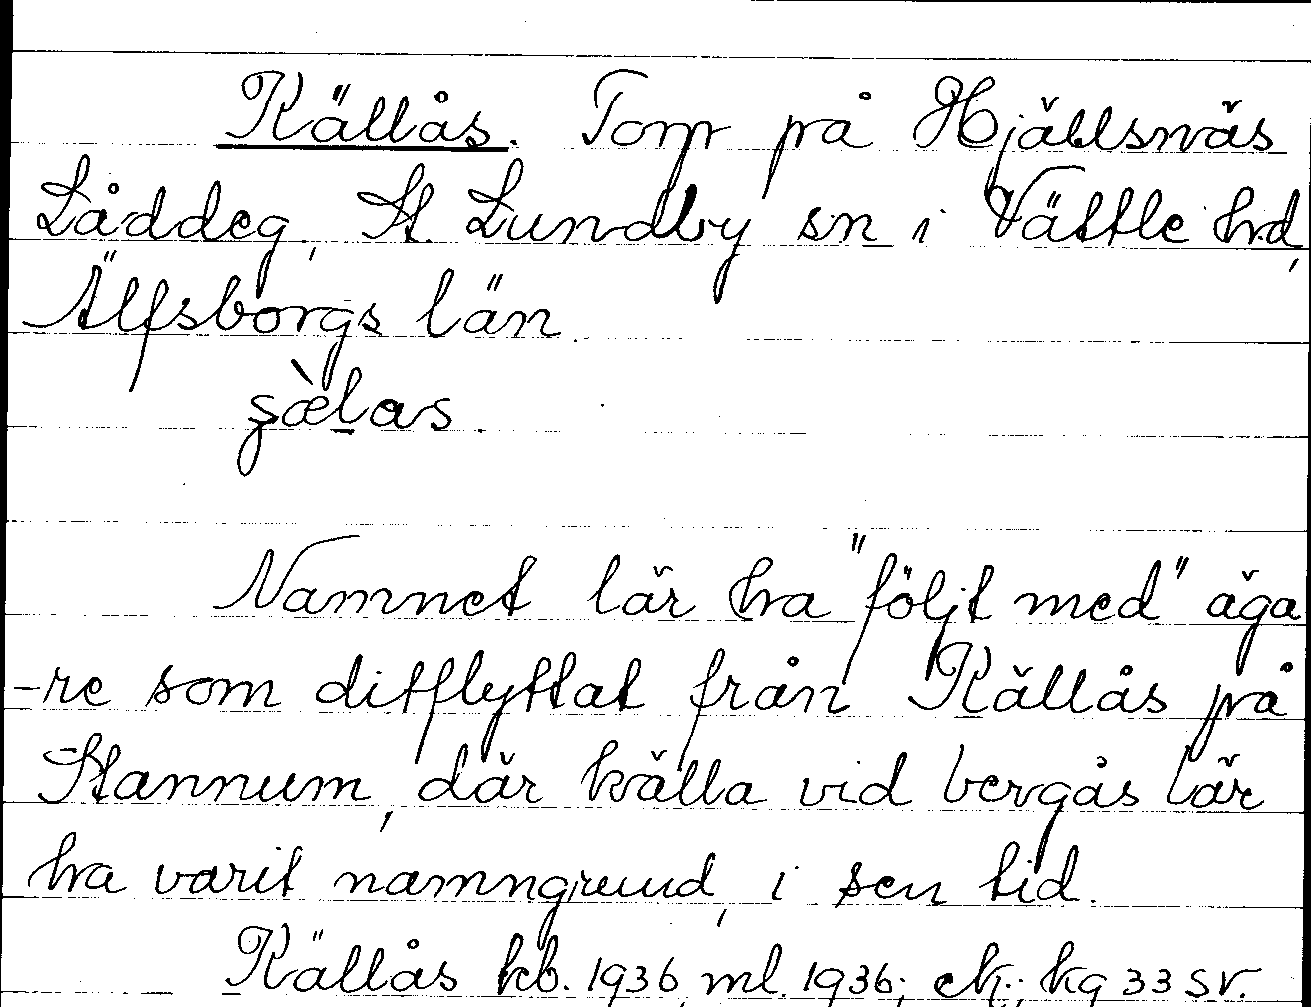 Källås. Torp på Hjällsnäs
Låddeg, St. Lundby sn i Vättle hd,
Älfsborgs län.
Namnet lär ha "följt med" äga
-re som ditflyttat från Källås på
Stannum, där källa vid bergås lär
ha varit namngrund, i sen tid.
Källås kb. 1936, ml. 1936; ek.; kg 33 SV.